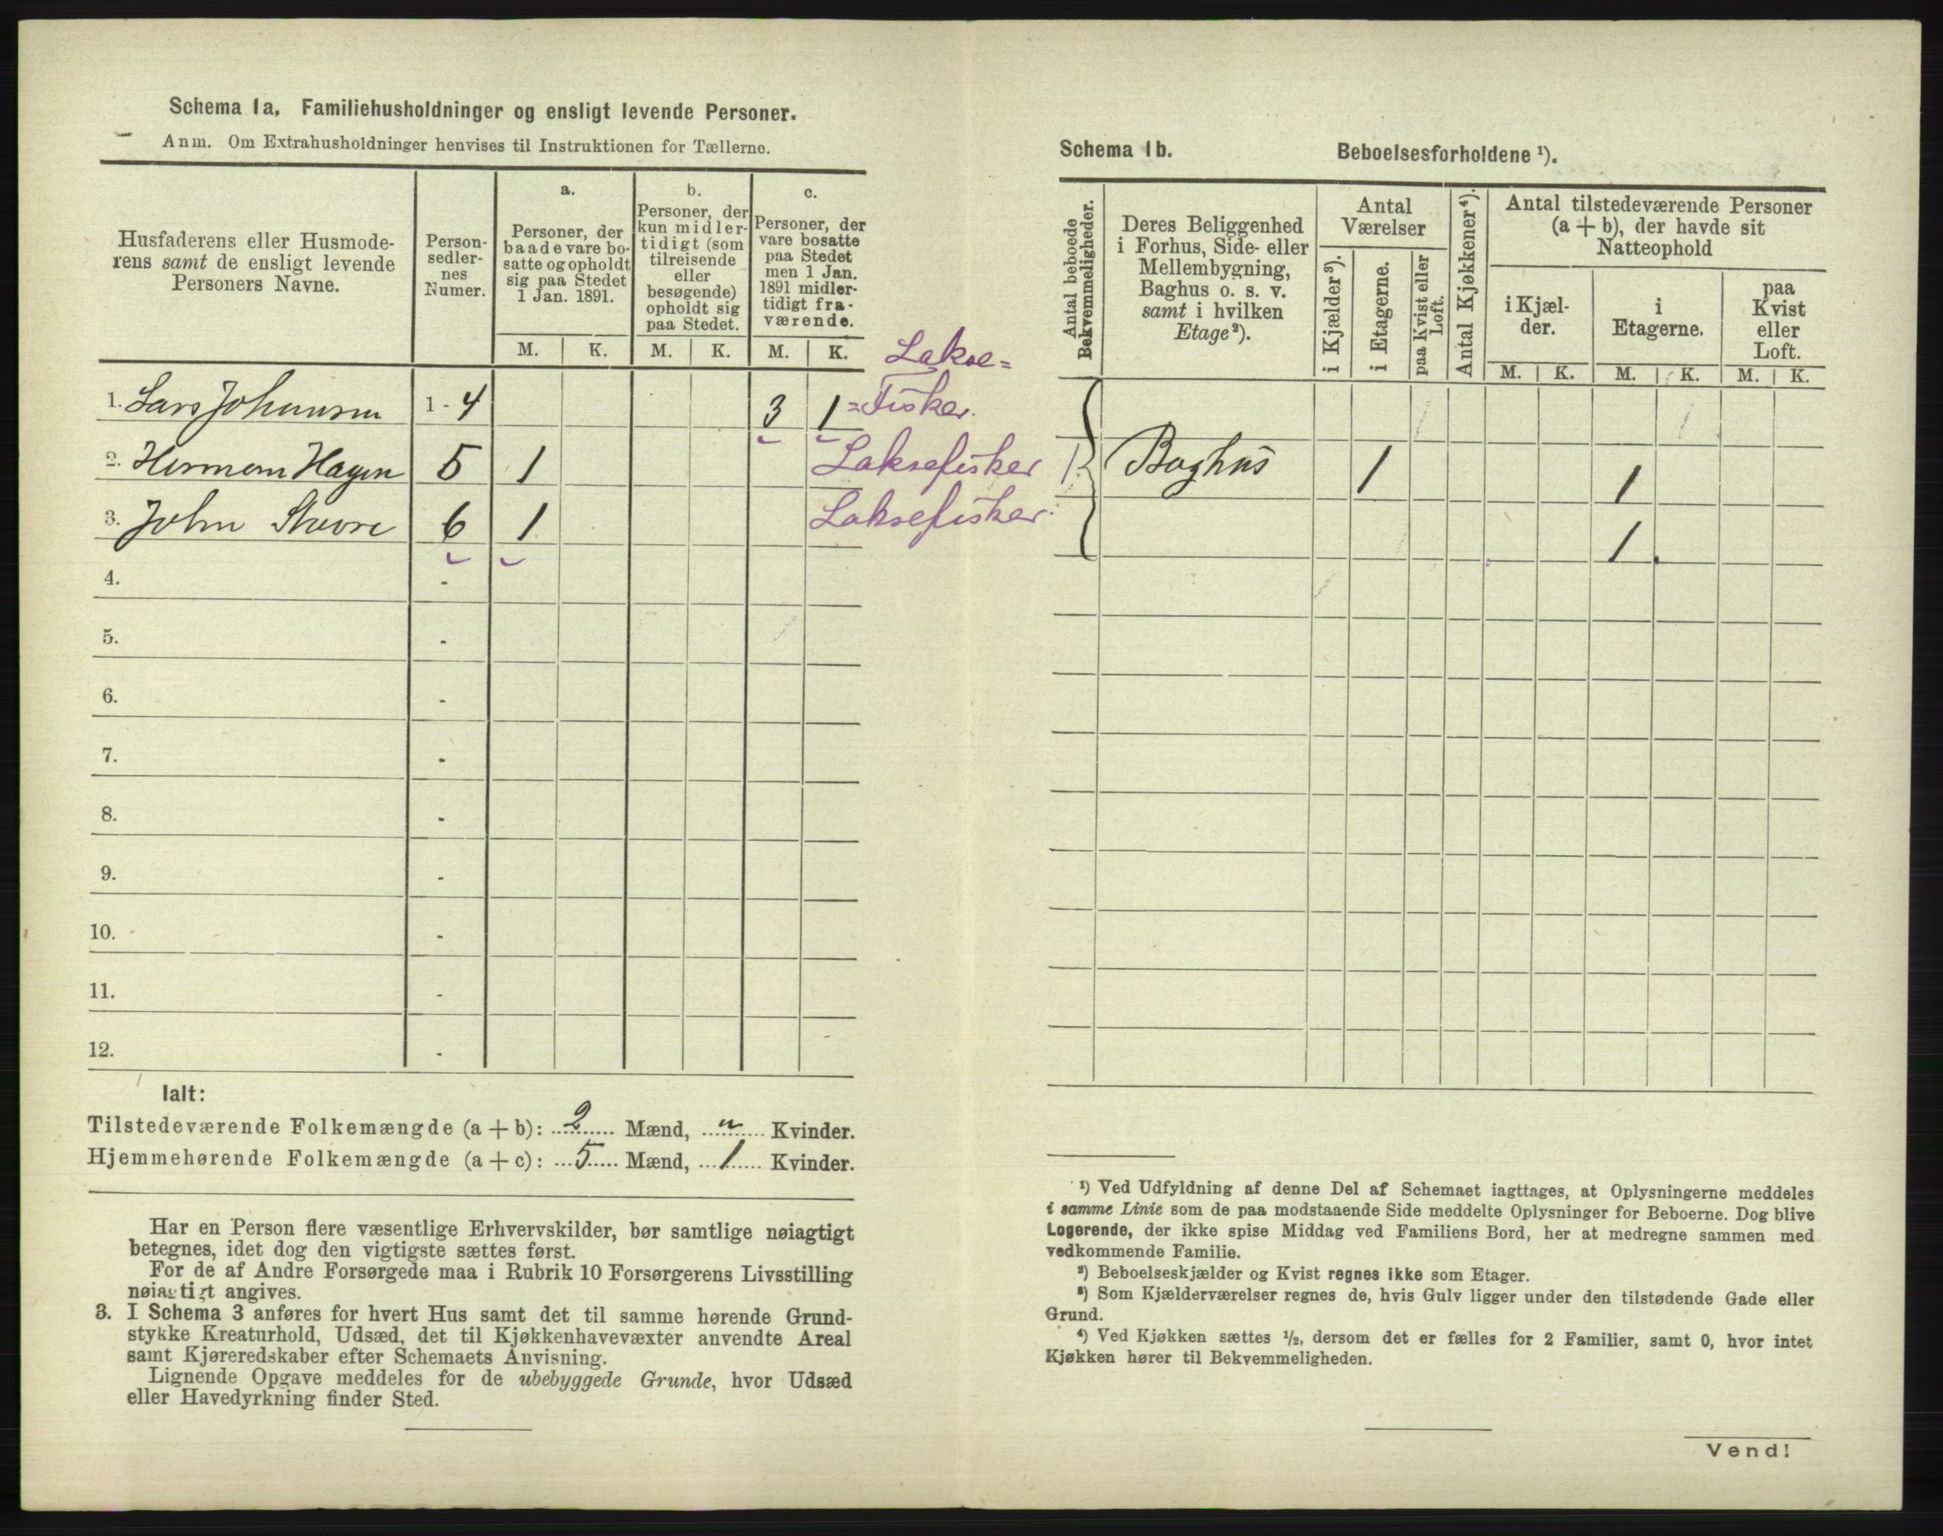 Schema 1a. Familiehusholdninger og ensligt levende Personer.
Anm. Om Extrahusholdninger henvises til Instruktionen for Tællerne.
Husfaderens eller Husmode-
rens samt de ensligt levende
Personers Navne.
Person-
sedler-
nes
Numer.
a.
Personer, der
baade vare bo-
satte og opholdt
sig paa Stedet
1 Jan. 1891.
b.
Personer, der
kun midler-
tidigt (som
tilreisende
eller
besøgende)
opholdt sig
paa Stedet.
c.
Personer, der
vare bosatte
paa Stedet
men 1 Jan.
1891 midler-
tidigt fra-
værende.
M. K. M. K. M. K.
Lakse=
1. Lars Johansen 1 - 4 3 1 =Fisker.
2. Herman Hagen 5 1 Laksefisker
3. John 6 1 Laksefisker.
4. -
5. -
6. -
7. -
8. -
9. -
10. -
11. -
12. -
Ialt:
Tilstedeværende Folkemængde (a + b): 2 Mænd, " Kvinder.
Hjemmehørende Folkemængde (a + c): 5 Mænd, 1 Kvinder.
Har en Person flere væsentlige Erhvervskilder, bør samtlige nøiagtigt
betegnes, idet dog den vigtigste sættes først.
For de af Andre Forsørgede maa i Rubrik 10 Forsørgerens Livsstilling
nøiagtigt angives.
3. I Schema 3 anføres for hvert Hus samt det til samme hørende Grund-
stykke Kreaturhold, Udsæd, det til Kjøkkenhavevæxter anvendte Areal
samt Kjøreredskaber efter Schemaets Anvisning.
Lignende Opgave meddeles for de ubebyggede Grunde, hvor Udsæd
eller Havedyrkning finder Sted.
Schema 1b. Beboelsesforholdene ¹).
Antal beboede
Bekvemmeligheder.
Deres Beliggenhed
i Forhus, Side- eller
Mellembygning,
Baghus o. s. v.
samt i hvilken
Etage²).
Antal
Værelser
i Kjælder³).
i Etagerne.
paa Kvist eller
Loft.
Antal Kjøkkener⁴).
Antal tilstedeværende Personer
(a + b), der havde sit
Natteophold
i Kjæl-
der.
i
Etagerne.
paa
Kvist
eller
Loft.
M. K. M. K. M. K.
1 Baghus 1 1
1
¹) Ved Udfyldning af denne Del af Schemaet iagttages, at Oplysningerne meddeles
i samme Linie som de paa modstaaende Side meddelte Oplysninger for Beboerne. Dog blive
Logerende, der ikke spise Middag ved Familiens Bord, her at medregne sammen med
vedkommende Familie.
²) Beboelseskjælder og Kvist regnes ikke som Etager.
³) Som Kjælderværelser regnes de, hvis Gulv ligger under den tilstødende Gade eller
Grund.
⁴) Ved Kjøkken sættes ½, dersom det er fælles for 2 Familier, samt 0, hvor intet
Kjøkken hører til Bekvemmeligheden.
Vend!